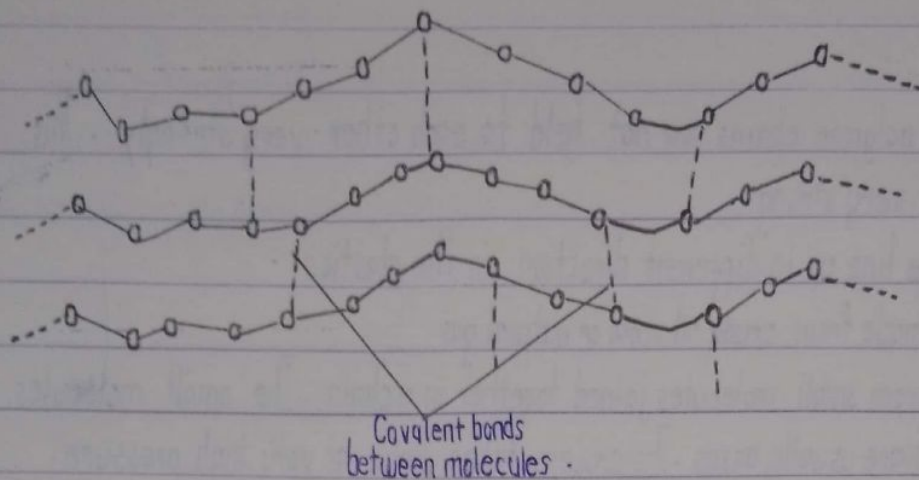 Covalent bonds
between molecules.